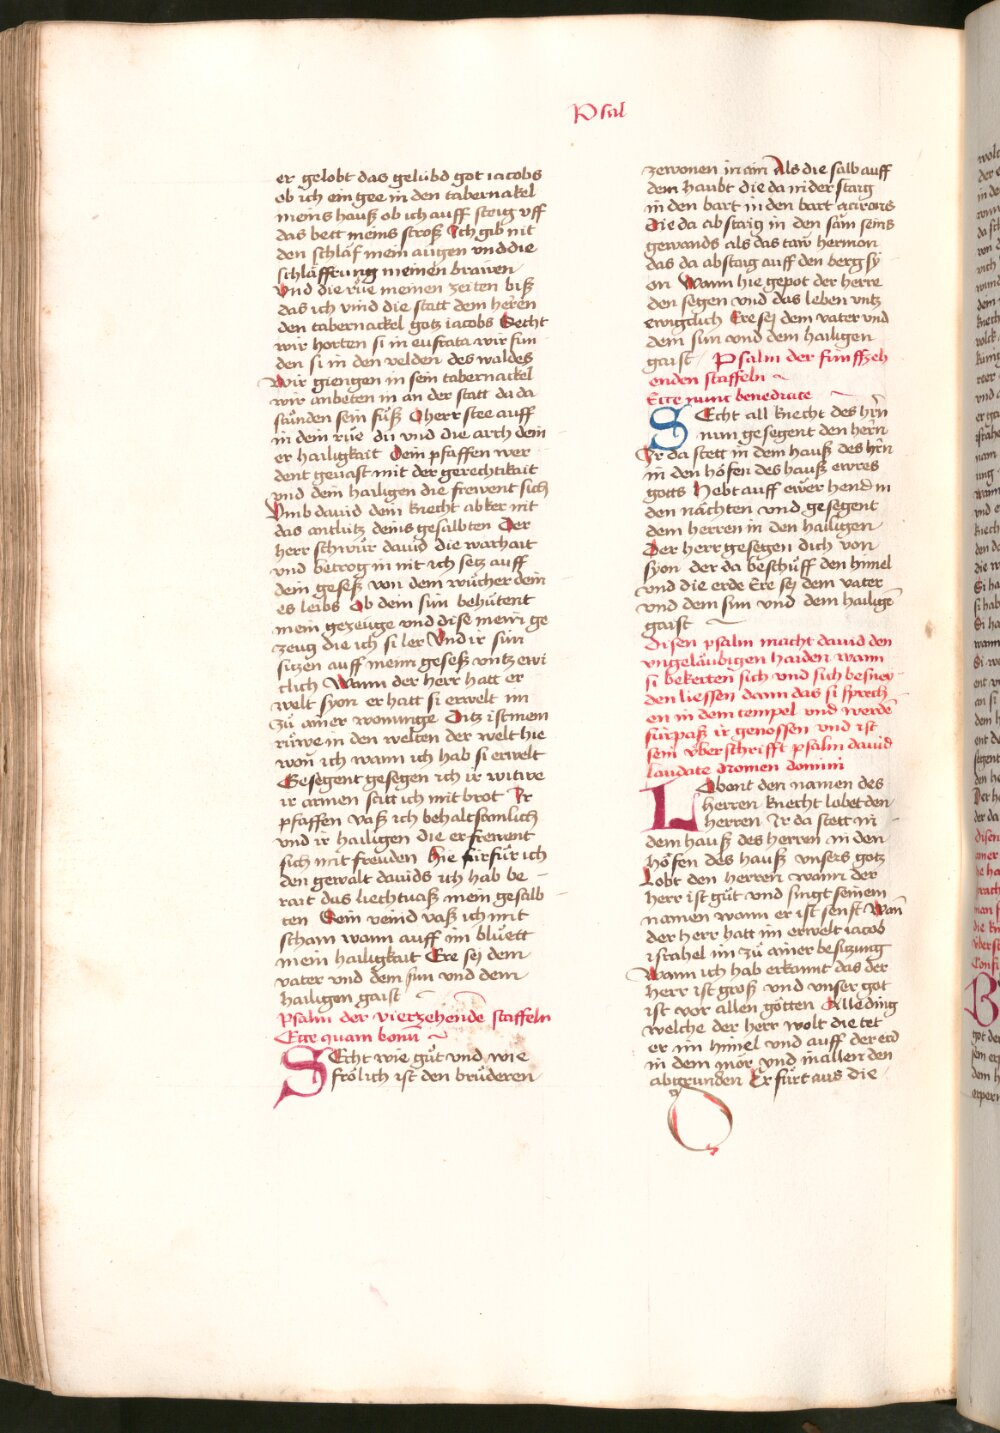 Psal
er gelobt das gelübd got iacobs
ob ich ein gee in den tabernakel
meins hauß ob ich auff steig vff
das bett meins stroß Ich gib nit
den schlaf mein augen vnd die
schläffrung meinen brawen
Vnd die rue meinen zeiten biß
das ich vind die statt dem herren
den tabernackel gotz iacobs Secht
wir horten si in eufrata wir fun
den si in den velden des waldes
Wir giengen in sein tabernackel
wir anbeten in an der statt da da
stůnden sein fůß O herr stee auff
in dein růe du vnd die arch dein
er hailigkait Dein pfaffen wer
dent gevast mit der gerechtikait
vnd dein hailigen die frewent sich
Vmb dauid dein knecht abker nit
das antlütz deins gesalbten Der
herr schwůr dauid die warhait
vnd betrog in nit ich setz auff
dein geseß von dem wůcher dein
es leibs Ob dein sün behütent
mein gezeüge vnd dise mein ge
zeug die ich si ler Vnd ir sün
sitzen auff meim geseß vntz ewi
clich Wann der herr hatt er
welt syon er hatt si erwelt im
zů ainer wonunge Ditz ist mein
růwe in den welten der welt hie
won ich wann ich hab si erwelt
Gesegent gesegen ich ir witwe
ir armen satt ich mit brot Ir
pfaffen vaß ich behaltsamlich
vnd ir hailigen die erfrewent
sich mit freuden Hie fürfür ich
den gewalt dauids ich hab be
rait das liechtvaß mein gesalb
ten Sein veind vaß ich mit
scham wann auff im blůett
mein hailigkait Ere sej dem
vater vnd dem sun vnd dem
hailigen gaist
Psalm der vierzehende staffeln
Ecce quam bonū
SEcht wie gůt vnd wie
frölich ist den brüderen
zewonen in ain Als die salb auff
dem haubt die da nider staig
in den bart in den bart aarons
Die da ab staig in den sam seins
gewands als das taw hermon
das da abstaig auff den berg sy
on Wann hie gepot der herre
den segen vnd das leben vntz
ewigclich Ere sej dem vater vnd
dem sun vnd dem hailigen
gaist Psalm der fünffzeh
enden staffeln
Ecce nunc benedicite
SEcht all knecht des hrn̄
nun gesegent den herrn
Ir da stett in dem hauß des hrn̄
in den höfen des hauß vnnsers
gotts Hebt auff ewer hend in
den nächten vnd gesegent
dem herren in den hailigen
Der herr gesegen dich von
syon der da beschůff den himel
vnd die erde Ere sej dem vater
vnd dem sun vnd dem hailigē
gaist
Disen psalm macht dauid den
vngeläubigen haiden wann
si bekerten sich vnd sich besney
den liessen dann das si sprech
en in dem tempel vnd werdē
fürpaß ir genossen vnd ist
sein vberschrifft psalm dauid
Laudate nomen domini
LObent den namen des
herren knecht lobet den
herren Ir da stett in
dem hauß des herren in den
höfen des hauß vnsers gotz
Lobt den herren wann der
herr ist gůt vnd singt seinem
namen wann er ist senft Wan̄
der herr hatt im erwelt iacob
israhel im zů ainer besitzung
Wann ich hab erkannt das der
herr ist groß vnd vnser got
ist vor allen götten Alle ding
welche der herr wolt die tet
er im himel vnd auff der erd
in dem mör vnd in allen den
abgrunden Er fůrt aus die